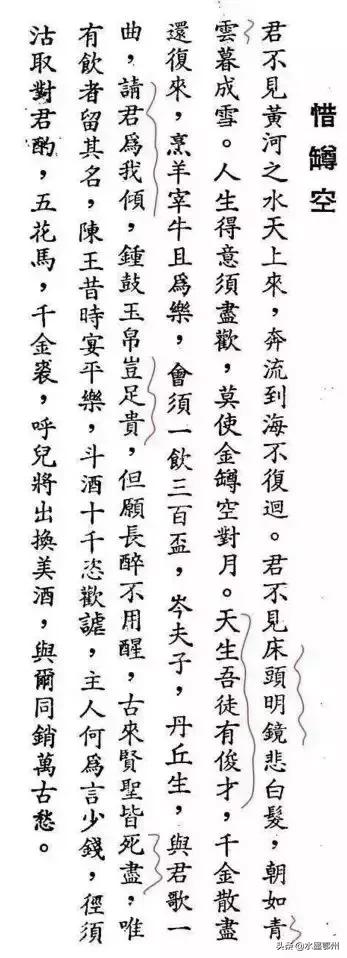 惜罇空
君不見黃河之水天上來，奔流到海不復迴。君不見床頭明鏡悲白髮，朝如青
雲暮成雪。人生得意須盡歡，莫使金罇空對月。天生吾徒有俊才，千金散盡
還復來，烹羊宰牛且爲樂，會須一飲三百盃，岑夫子，丹丘生，與君歌一
曲，請君爲我傾，鍾鼓玉帛豈足貴，但願長醉不用醒，古來賢聖皆死盡，唯
有飲者留其名，陳王昔時宴平樂，斗酒十千恣歡謔，主人何爲言少錢，徑須
沽取對君酌，五花馬，千金裘，呼兒將出換美酒，與爾同銷萬古愁。
头条@水墨鄂州